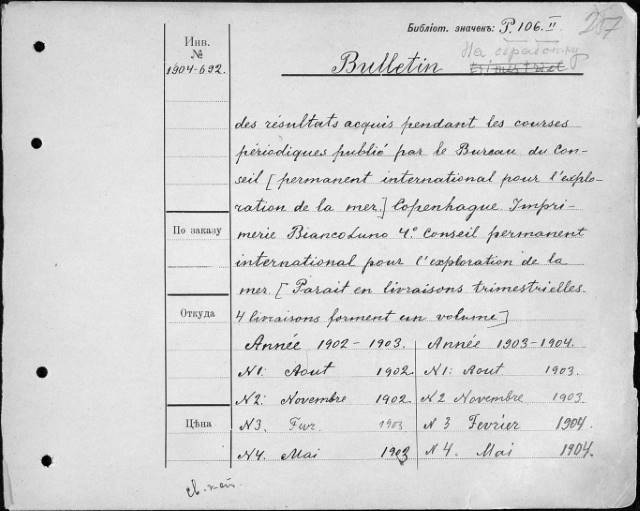 Библіот. значенъ: P. 106. II
257
На обработку
Bulletin trimestriel
Инв.
№
1904-692.
des résultats acquis pendant les courses
périodiques publié par le Bureau du Con-
seil [permanent international pour l'explo-
ration de la mer.] Copenhague. Impri-
merie Bianco Luno 4.° Conseil permanent
international pour l'exploration de la
mer. [Parait en livraisons trimestrielles.
4 livraisons forment un volume]
По заказу
Откуда
Цѣна
Année 1902-1903.
N1: Aout 1902
N2: Novembre 1902
N3. 1903
N4. Mai 1903
Année 1903-1904.
N1: Aout 1903.
N2 Novembre 1903
N 3 Fevrier 1904
N 4. Mai 1904.